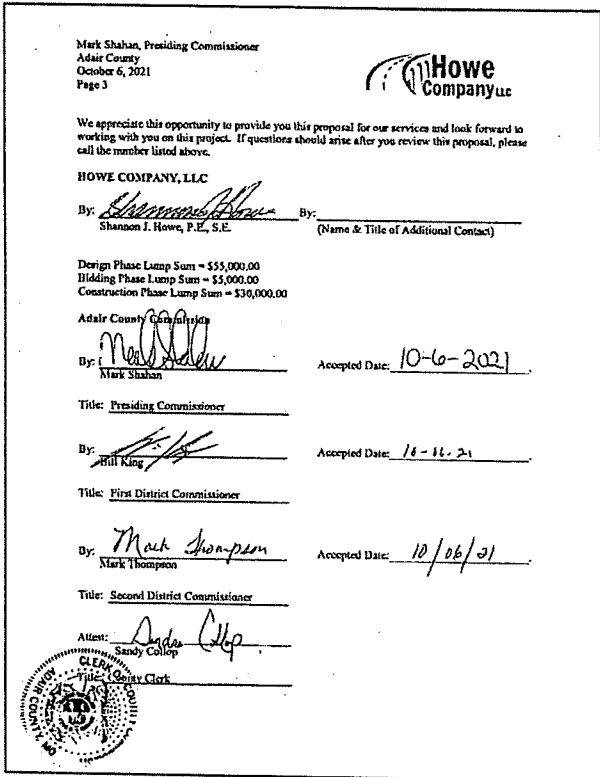 Mark Shahan, Presiding Commissioner
Adair County
October 6, 2021
Page 3
Howe
Company LLC
We appreciate this opportunity to provide you this proposal for our services and look forward to
working with you on this project. If questions should arise after you review this proposal, please
call the number listed above.
HOWE COMPANY, LLC
By: By:
Shannon J. Howe, P.E., S.E. (Name & Title of Additional Contact)
Design Phase Lump Sum = $55,000.00
Bidding Phase Lump Sum = $5,000.00
Construction Phase Lump Sum = $30,000.00
Adair County Commission
By: Accepted Date: 10-6-2021
Mark Shahan
Title: Presiding Commissioner
By: Accepted Date:
Bill King
Title: First District Commissioner
By: Mark Thompson Accepted Date: 10/06/21
Mark Thompson
Title: Second District Commissioner
Attest: Sandra Collop
Sandy Collop
Title: County Clerk
CLERK OF COUNTY
ADAIR COUNTY